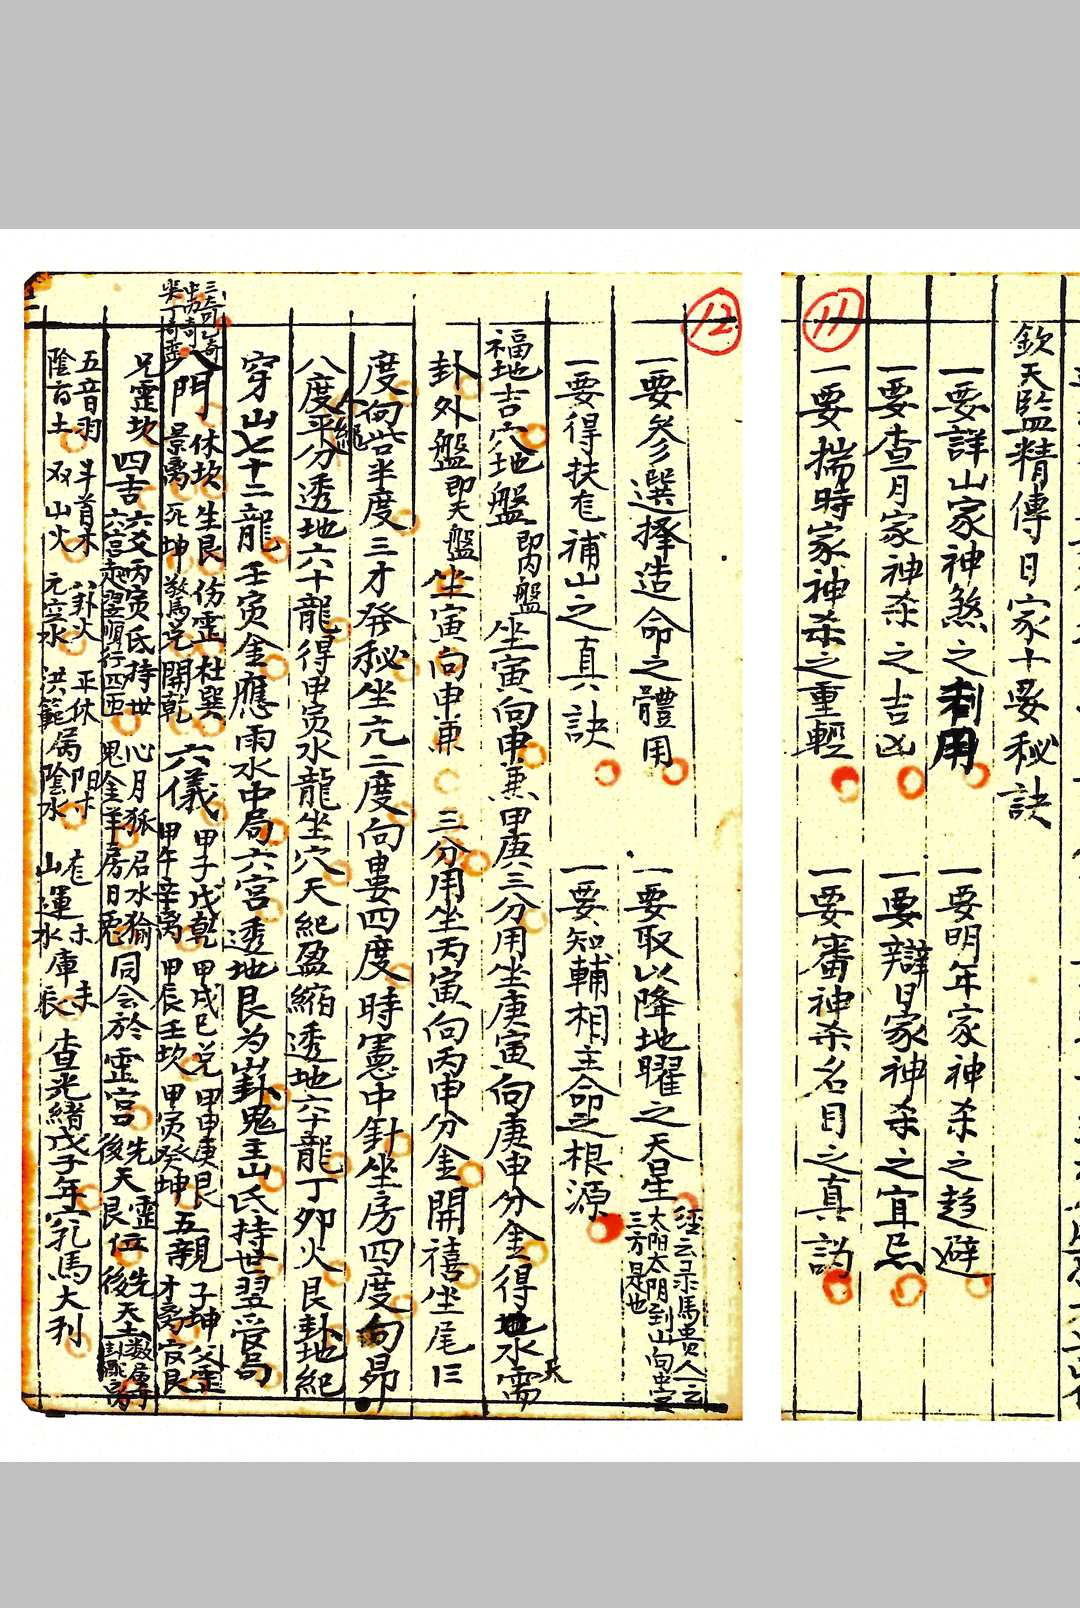 11
欽天監精傳日家十要秘訣
一要詳山家神煞之利用 一要明年家神杀之趋避
一要查月家神杀之吉凶 一要辯日家神杀之宜忌
一要揣時家神杀之重輕 一要審神杀名目之真訣
12
一要參選擇造命之體用 一要取以降地曜之天星
三方是也
一要得扶尨補山之真訣 一要知輔相主命之根源
福地吉穴地盤即內盤坐寅向申兼甲庚三分用坐庚寅向庚申分金得地水需
卦外盤即天盤坐寅向申兼 三分用坐丙寅向丙申分金開禧坐尾三
度向觜半度三才発秘坐亢二度向婁四度時憲中針坐房四度向昴
八度平分透地六十龍得甲寅水龍坐穴天紀盈縮透地六十龍丁卯火艮卦地紀
穿山七十二龍壬寅金應雨水中局六宮透地艮为山卦鬼主山氏持世翌管局
八門 休坎生艮伤震杜巽
景离死坤驚兑開乾
六儀 甲子戊乾甲戌己兑甲申庚艮
甲午辛离甲辰壬坎甲寅癸坤
五親 子坤父震
才离官艮
兄震坎 四吉 六爻丙寅氏持世 心月狐
同会於震宮
五音羽 斗首木 八卦火 正体
陰百土 双山火 元空水 洪範属陰水
山運水庫辰
查光緒戊子年 馬大利